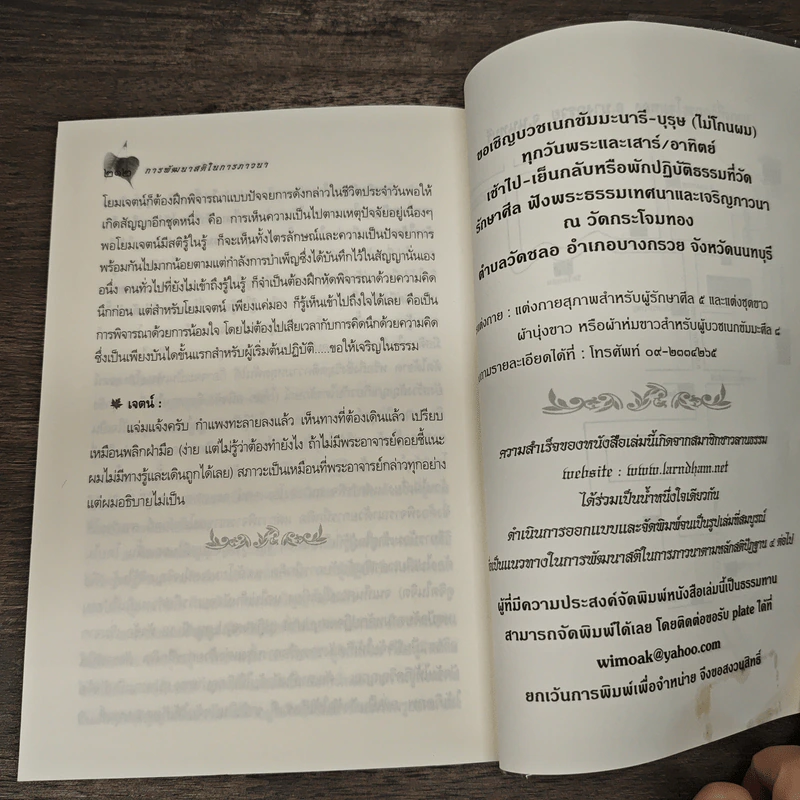 ๒๑๒ การพัฒนาสติในการภาวนา
โยมเจตน์ก็ต้องฝึกพิจารณาแบบปัจจยการดังกล่าวในชีวิตประจำวันพอให้
เกิดสัญญาอีกชุดหนึ่ง คือ การเห็นความเป็นไปตามเหตุปัจจัยอยู่เนืองๆ
พอโยมเจตน์มีสติรู้ในรู้ ก็จะเห็นทั้งไตรลักษณ์และความเป็นปัจจยาการ
พร้อมกันไปมากน้อยตามแต่กำลังการบำเพ็ญซึ่งได้บันทึกไว้ในสัญญานั่นเอง
อนึ่ง คนทั่วไปที่ยังไม่เข้าถึงรู้ในรู้ ก็จำเป็นต้องฝึกหัดพิจารณาด้วยความคิด
นึกก่อน แต่สำหรับโยมเจตน์ เพียงแค่มอง ก็รู้เห็นเข้าไปถึงใจได้เลย คือเป็น
การพิจารณาด้วยการน้อมใจ โดยไม่ต้องไปเสียเวลากับการคิดนึกด้วยความคิด
ซึ่งเป็นเพียงบันไดขั้นแรกสำหรับผู้เริ่มต้นปฏิบัติ.....ขอให้เจริญในธรรม
เจตน์ :
แจ่มแจ้งครับ กำแพงทะลายลงแล้ว เห็นทางที่ต้องเดินแล้ว เปรียบ
เหมือนพลิกฝ่ามือ (ง่าย แต่ไม่รู้ว่าต้องทำยังไง ถ้าไม่มีพระอาจารย์คอยชี้แนะ
ผมไม่มีทางรู้และเดินถูกได้เลย) สภาวะเป็นเหมือนที่พระอาจารย์กล่าวทุกอย่าง
แต่ผมอธิบายไม่เป็น
ขอเชิญบวชเนกขัมมะนารี-บุรุษ (ไม่โกนผม)
ทุกวันพระและเสาร์/อาทิตย์
เช้าไป-เย็นกลับหรือพักปฏิบัติธรรมที่วัด
รักษาศีล ฟังพระธรรมเทศนาและเจริญภาวนา
ณ วัดกระโจมทอง
ตำบลวัดชลอ อำเภอบางกรวย จังหวัดนนทบุรี
แต่งกาย : แต่งกายสุภาพสำหรับผู้รักษาศีล ๕ และแต่งชุดขาว
ผ้านุ่งขาว หรือผ้าห่มขาวสำหรับผู้บวชเนกขัมมะศีล ๘
ถามรายละเอียดได้ที่ : โทรศัพท์ ๐๙-๒๑๐๔๒๖๕
ความสำเร็จของหนังสือเล่มนี้เกิดจากสมาชิกชาวลานธรรม
website : www.larndham.net
ได้ร่วมเป็นน้ำหนึ่งใจเดียวกัน
ดำเนินการออกแบบและจัดพิมพ์จนเป็นรูปเล่มที่สมบูรณ์
เป็นแนวทางในการพัฒนาสติในการภาวนาตามหลักสติปัฏฐาน ๔ ต่อไป
ผู้ที่มีความประสงค์จัดพิมพ์หนังสือเล่มนี้เป็นธรรมทาน
สามารถจัดพิมพ์ได้เลย โดยติดต่อขอรับ plate ได้ที่
wimoak@yahoo.com
ยกเว้นการพิมพ์เพื่อจำหน่าย จึงขอสงวนสิทธิ์